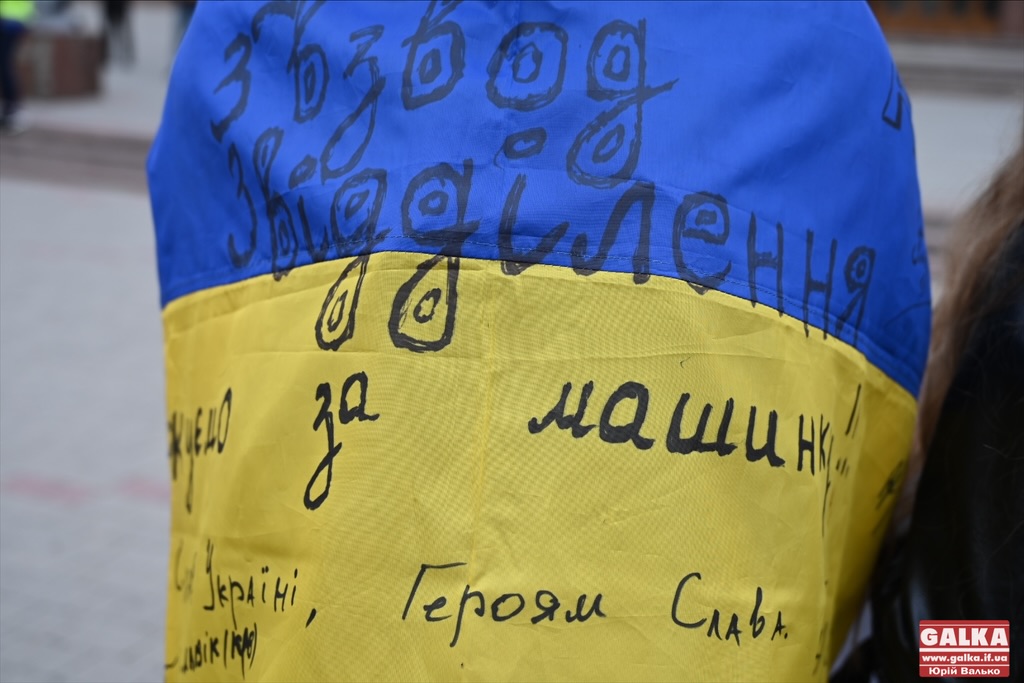 3 взвод
3 відділення
за машинку..."
Україні, Героям Слава.
GALKA
www.galka.if.ua
Юрій Валько